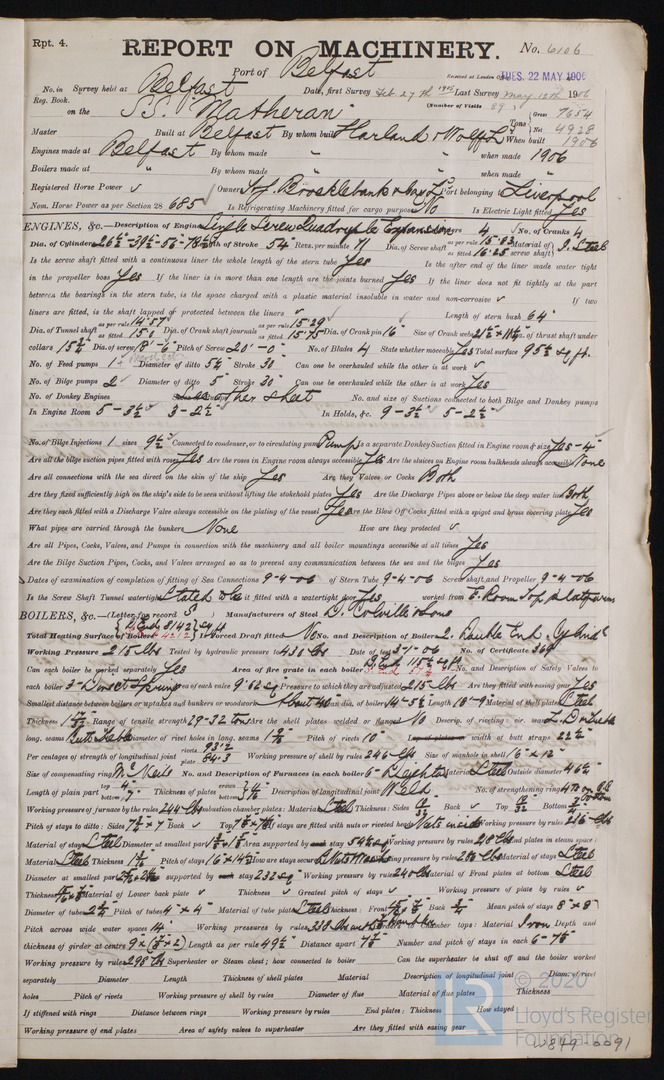 Rpt. 4.
REPORT ON MACHINERY. No. 6106
Port of Belfast
Received at London Office TUES. 22 MAY 1906
No. in Survey held at Belfast Date, first Survey Feb 27th 1905 Last Survey May 12th 1906
Reg. Book. (Number of Visits 89)
on the SS. "Matheran" Tons { Gross 7654 Net 4928
Master Built at Belfast By whom built Harland & Wolff Ld When built 1906
Engines made at Belfast By whom made " when made 1906
Boilers made at " By whom made " when made "
Registered Horse Power ✓ Owners T. & J. Brocklebank Port belonging to Liverpool
Nom. Horse Power as per Section 28 685 Is Refrigerating Machinery fitted for cargo purposes No Is Electric Light fitted Yes
ENGINES, &c.—Description of Engines Single Screw Quadruple Expansion 4 No. of Cranks 4
Dia. of Cylinders Length of Stroke 54 Revs. per minute 71 Dia. of Screw shaft as per rule 15.83 as fitted 16.25 Material of screw shaft I. Steel
Is the screw shaft fitted with a continuous liner the whole length of the stern tube Yes Is the after end of the liner made water tight
in the propeller boss Yes If the liner is in more than one length are the joints burned Yes If the liner does not fit tightly at the part
between the bearings in the stern tube, is the space charged with a plastic material insoluble in water and non-corrosive ✓ If two
liners are fitted, is the shaft lapped or protected between the liners ✓ Length of stern bush 64"
Dia. of Tunnel shaft as per rule 14.57 as fitted 15.0 Dia. of Crank shaft journals as per rule 15.29 as fitted 15.75 Dia. of Crank pin 16" Size of Crank webs Dia. of thrust shaft under
collars 15¾ Dia. of screw 18'-6" Pitch of Screw 20'-0" No. of Blades 4 State whether moveable Yes Total surface 95½ sq ft.
No. of Feed pumps 1 Diameter of ditto 5½ Stroke 30 Can one be overhauled while the other is at work ✓
No. of Bilge pumps 2 Diameter of ditto 5" Stroke 20" Can one be overhauled while the other is at work Yes
No. of Donkey Engines See other sheet No. and size of Suctions connected to both Bilge and Donkey pumps
In Engine Room 5-3½ 3-2½ In Holds, &c. 9-3½ 5-2½
No. of Bilge Injections 1 sizes 9½ Connected to condenser, or to circulating pump Pump Is a separate Donkey Suction fitted in Engine room & size Yes-4"
Are all the bilge suction pipes fitted with roses Yes Are the roses in Engine room always accessible Yes Are the sluices on Engine room bulkheads always accessible None
Are all connections with the sea direct on the skin of the ship Yes Are they Valves or Cocks Both
Are they fixed sufficiently high on the ship's side to be seen without lifting the stokehold plates Yes Are the Discharge Pipes above or below the deep water line Both
Are they each fitted with a Discharge Valve always accessible on the plating of the vessel Yes Are the Blow Off Cocks fitted with a spigot and brass covering plate Yes
What pipes are carried through the bunkers None How are they protected ✓
Are all Pipes, Cocks, Valves, and Pumps in connection with the machinery and all boiler mountings accessible at all times Yes
Are the Bilge Suction Pipes, Cocks, and Valves arranged so as to prevent any communication between the sea and the bilges Yes
Dates of examination of completion of fitting of Sea Connections 9-4-06 of Stern Tube 9-4-06 Screw shaft and Propeller 9-4-06
Is the Screw Shaft Tunnel watertight Is it fitted with a watertight door Yes worked from E. Room Top platform
BOILERS, &c.—(Letter for record S) Manufacturers of Steel D. Colville & Sons
Total Heating Surface of Boilers Is Forced Draft fitted No No. and Description of Boilers 2. Double End. Cylind'l
Working Pressure 215 lbs Tested by hydraulic pressure to 430 lbs Date of test 3-1-06 No. of Certificate 369
Can each boiler be worked separately Yes Area of fire grate in each boiler No. and Description of Safety Valves to
each boiler 3-Direct Spring Area of each valve 9.62 sq" Pressure to which they are adjusted 215 lbs Are they fitted with easing gear Yes
Smallest distance between boilers or uptakes and bunkers or woodwork About 40" Mean dia. of boilers Length Material of shell plates Steel
Thickness Range of tensile strength 29-32 tons Are the shell plates welded or flanged No Descrip. of riveting: cir. seams L. Double
long. seams Butt Treble Diameter of rivet holes in long. seams Pitch of rivets 10" width of butt straps 22½"
Per centages of strength of longitudinal joint rivets 93.2 plate 84.3 Working pressure of shell by rules 246 lbs Size of manhole in shell 16" x 12"
Size of compensating ring No. and Description of Furnaces in each boiler 6- Material Steel Outside diameter 46½
Length of plain part top bottom Thickness of plates crown bottom Description of longitudinal joint Weld No. of strengthening rings
Working pressure of furnace by the rules 244 lbs Combustion chamber plates: Material Steel Thickness: Sides Back ✓ Top Bottom
Pitch of stays to ditto: Sides 7½ x 7 Back ✓ Top If stays are fitted with nuts or riveted heads Nuts inside Working pressure by rules 216 lbs
Material of stays Steel Diameter at smallest part Area supported by each stay Working pressure by rules End plates in steam space:
Material Steel Thickness Pitch of stays How are stays secured Working pressure by rules Material of stays Steel
Diameter at smallest part Area supported by each stay 232 sq" Working pressure by rules 240 lbs Material of Front plates at bottom Steel
Thickness Material of Lower back plate ✓ Thickness ✓ Greatest pitch of stays ✓ Working pressure of plate by rules ✓
Diameter of tubes Pitch of tubes 4" x 4" Material of tube plates Steel Thickness: Front Back ¾ Mean pitch of stays 8" x 8"
Pitch across wide water spaces 14" Working pressures by rules Girders to Chamber tops: Material Iron Depth and
thickness of girder at centre Length as per rule 49½ Distance apart Number and pitch of stays in each
Working pressure by rules 298 lbs Superheater or Steam chest; how connected to boiler Can the superheater be shut off and the boiler worked
separately Diameter Length Thickness of shell plates Material Description of longitudinal joint Diam. of rivet
holes Pitch of rivets Working pressure of shell by rules Diameter of flue Material of flue plates Thickness
If stiffened with rings Distance between rings Working pressure by rules End plates: Thickness How stayed
Working pressure of end plates Area of safety valves to superheater Are they fitted with easing gear
© 2020
Lloyd's Register
Foundation
W849-0091